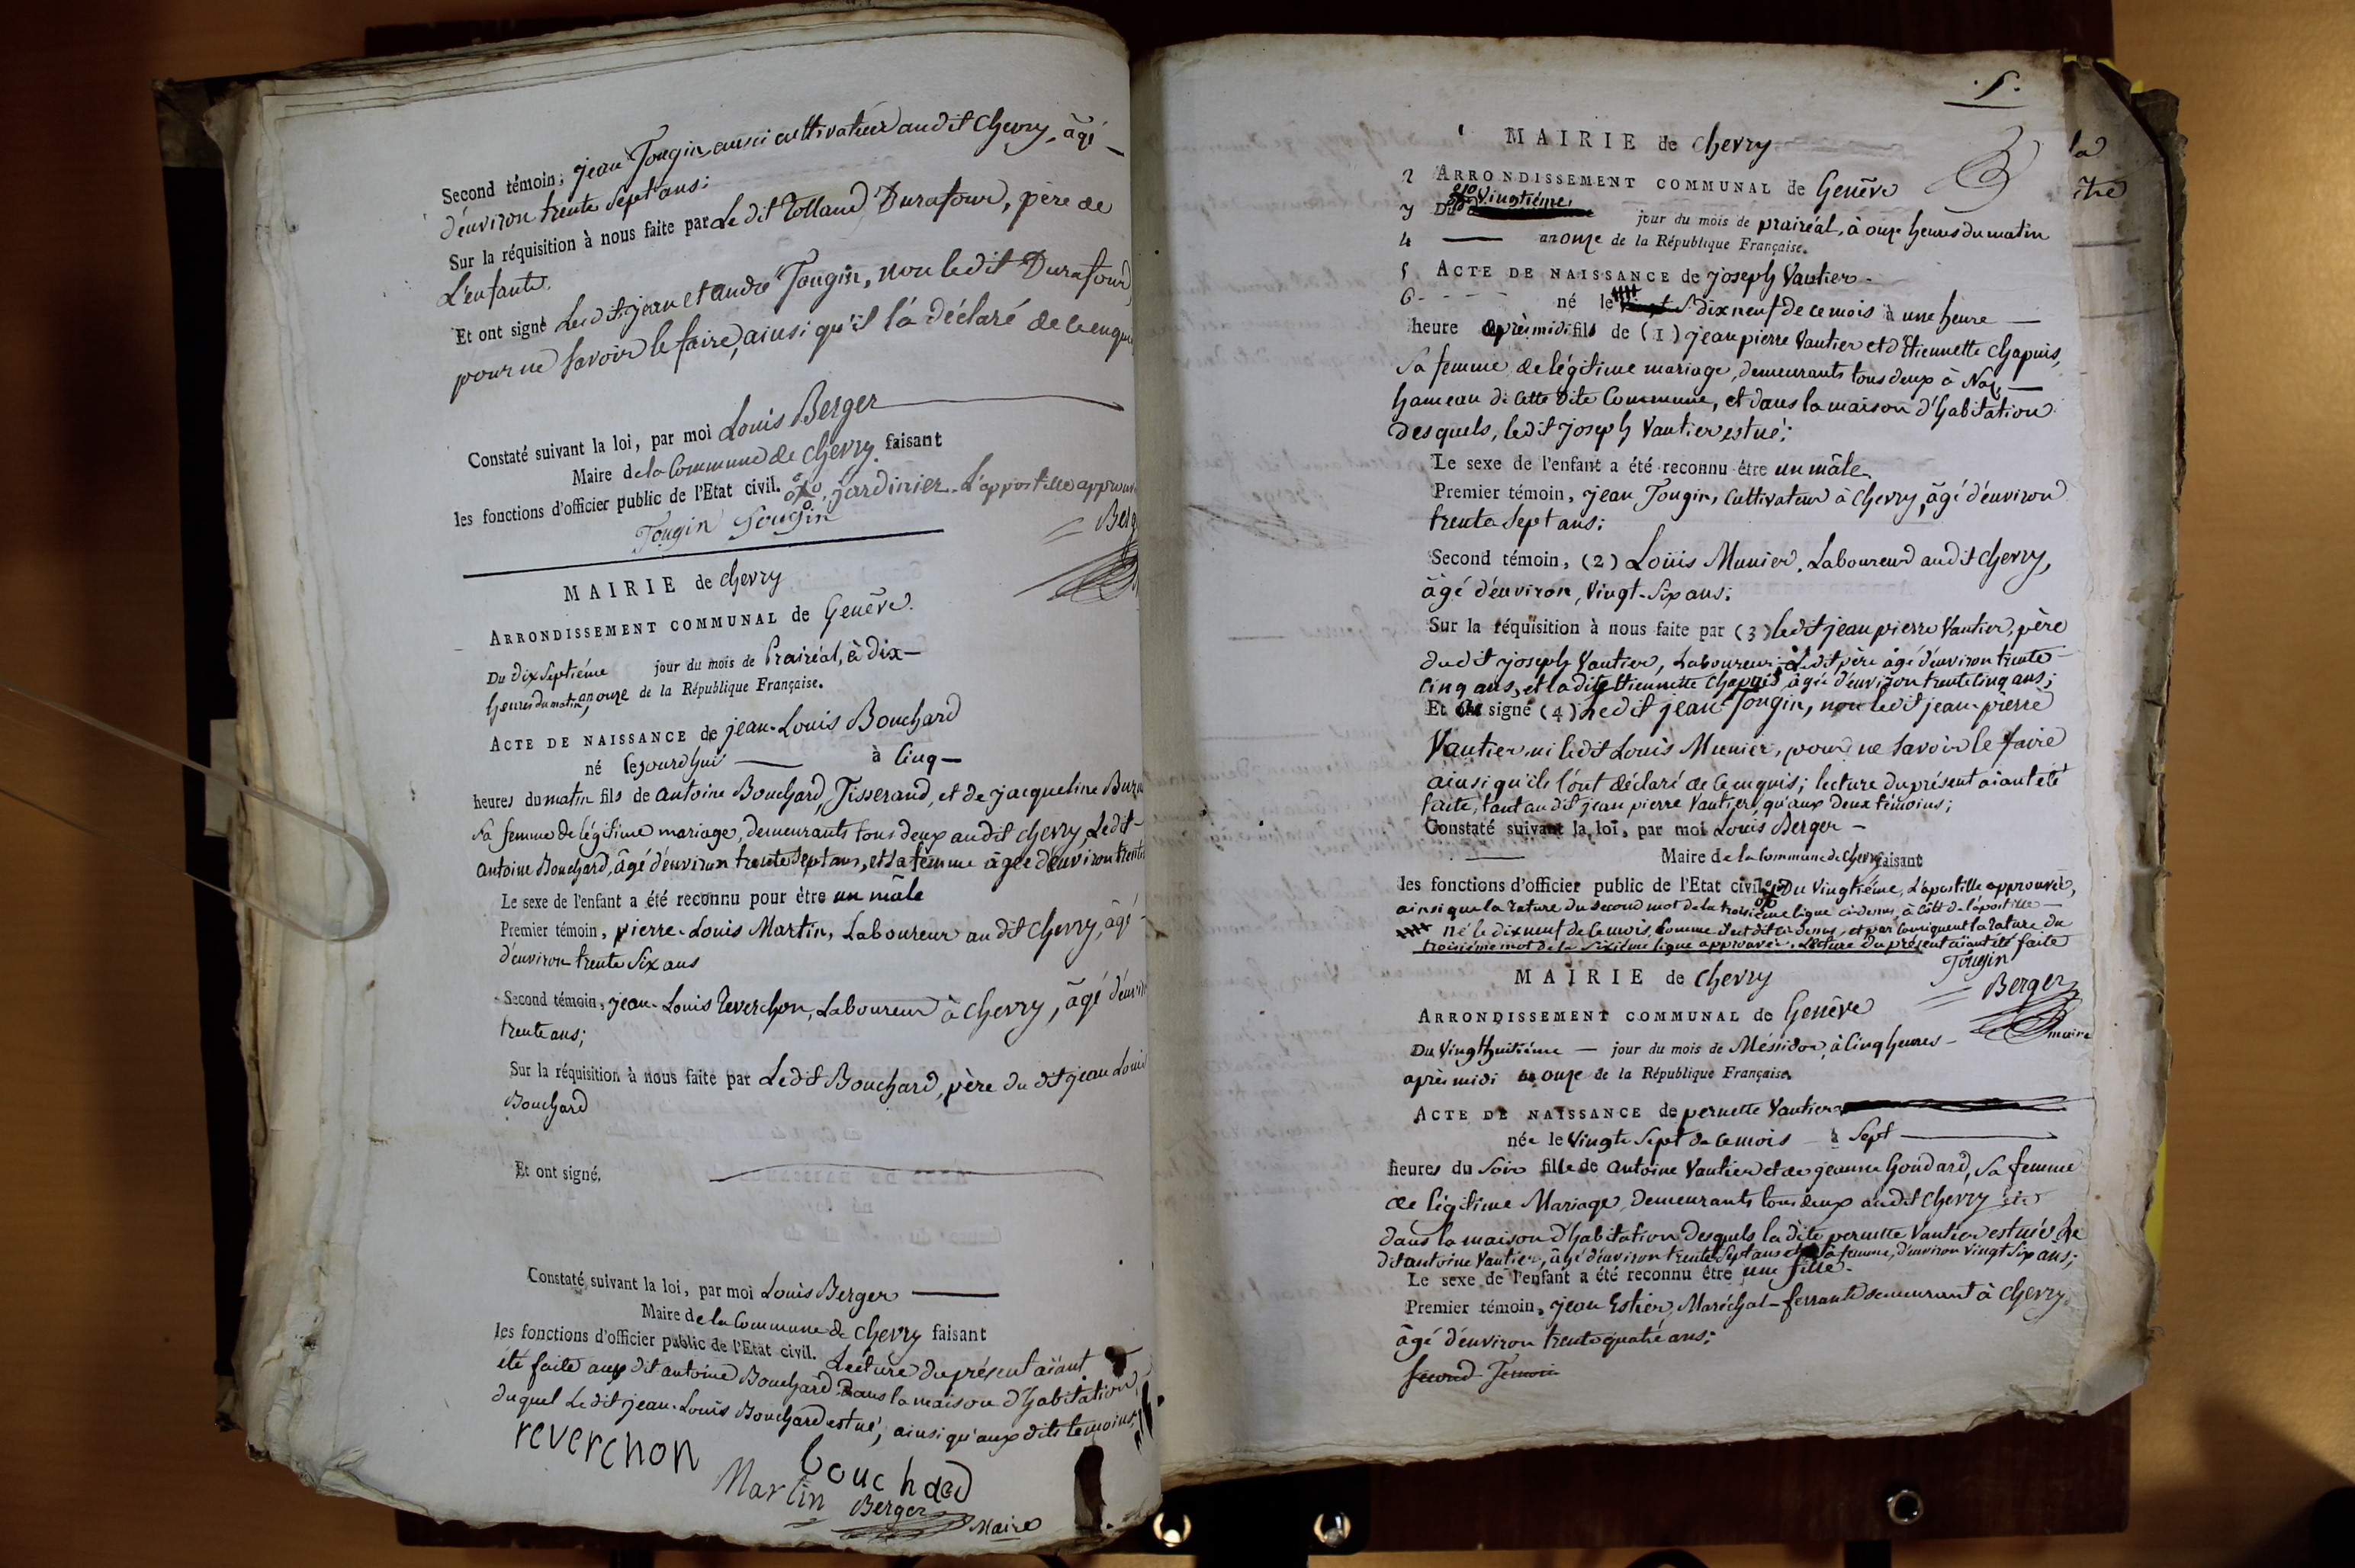 Second témoin, jean Tougin, aussi cultivateur audit Chevry, âgé
d'environ trente sept ans;
Sur la réquisition à nous faite par Le dit Rolland Durafour, père de
L'enfant.
Et ont signé Lesdits jean et andré Tougin, non ledit Durafour,
pour ne savoir le faire, ainsi qu'il l'a déclaré de ce enquis
Constaté suivant la loi, par moi Louis Berger
Maire de la Commune de Chevry faisant
les fonctions d'officier public de l'Etat civil. jardinier. L'appostille approuvée
Tougin Tougin
Berg
MAIRIE de Chevry
ARRONDISSEMENT COMMUNAL de Genève.
Du dix Septiéme jour du mois de Prairéal, à dix
heures du matin, an onze de la République Française.
ACTE DE NAISSANCE de jean-Louis Bouchard
né cejourdhui à Cinq
heures du matin fils de antoine Bouchard, Tisserand, et de jacqueline
sa femme de légitime mariage, demeurants tous deux audit Chevry, Ledit
antoine Bouchard, âgé d'environ trente Sept ans, et sa femme âgée d'environ trente
Le sexe de l'enfant a été reconnu pour être un mâle
Premier témoin, pierre-Louis Martin, Laboureur audit Chevry, âgé
d'environ trente Six ans
Second témoin, jean-Louis Reverchon, Laboureur à Chevry, âgé d'environ
trente ans;
Sur la réquisition à nous faite par Ledit Bouchard, père du dit jean Louis
Bouchard
Et ont signé.
Constaté suivant la loi, par moi Louis Berger
Maire de la Commune de Chevry faisant
les fonctions d'officier public de l'Etat civil. Lecture du présent aïant
été faite aux dit antoine Bouchard dans la maison d'habitation,
duquel Le dit jean-Louis Bouchard est né, ainsi qu'aux dits temoins,
reverchon bouchard
Martin Berger Maire
5.
1 MAIRIE de Chevry
2 ARRONDISSEMENT COMMUNAL de Genève
Vingtiéme
3 Du jour du mois de prairéal, à onze heures du matin
4 an onze de la République Française.
5 ACTE DE NAISSANCE de joseph Vautier
6 né le dix neuf de ce mois à une heure
heure après midi fils de (1) jean pierre Vautier et d'Etiennette Chapuis,
sa femme, de légitime mariage, demeurants tous deux à Naz,
hameau de cette dite Commune, et dans la maison d'habitation
desquels, ledit joseph Vautier est né;
Le sexe de l'enfant a été reconnu être un mâle.
Premier témoin, jean Tougin, Cultivateur à Chevry, âgé d'environ
trente Sept ans;
Second témoin, (2) Louis Munier, Laboureur audit Chevry,
âgé d'environ, Vingt-Six ans;
Sur la réquisition à nous faite par (3) ledit jean pierre Vautier, père
dudit joseph Vautier, Laboureur; Ledit père âgé d'environ trente
cinq ans, et la dite Etiennette Chapuis âgée d'environ trente cinq ans;
Et ont signé (4) Ledit jean Tougin, non ledit jean-pierre
Vautier, ni ledit Louis Munier, pour ne savoir le faire
ainsi qu'ils l'ont déclaré de ce enquis; lecture du présent aïant été
faite, tant au dit jean pierre Vautier, qu'aux deux témoins;
Constaté suivant la loi, par moi Louis Berger
Maire de la Commune de Chevry faisant
les fonctions d'officier public de l'Etat civil. Du Vingtiéme, L'apostille approuvée,
ainsi que la rature du second mot de la troisiéme ligne ci-dessus, à côté de l'apostille
né le dix neuf de ce mois, Comme il est dit ci-dessus, et par conséquent la rature du
troisiéme mot de la Sixiéme ligne approuvée. Lecture du présent aïant été faite
Tougin
Berger
maire
MAIRIE de Chevry
ARRONDISSEMENT COMMUNAL de Genève
Du Vingthuitiéme jour du mois de Méssidor, à Cinq heures
après midi an onze de la République Française.
ACTE DE NAISSANCE de pernette Vautier
née le Vingt Sept de ce mois à Sept
heures du Soir fille de antoine Vautier et de jeanne Goudard, sa femme
de légitime Mariage, demeurants tous deux audit Chevry et
dans la maison d'habitation desquels la dite pernette Vautier est née Le
dit antoine Vautier, âgé d'environ trente Sept ans et sa femme, d'environ Vingt Six ans;
Le sexe de l'enfant a été reconnu être une fille.
Premier témoin, jean Estier, Maréchal-ferrant demeurant à Chevry
âgé d'environ trente quatre ans;
Second Temoin
la
ître